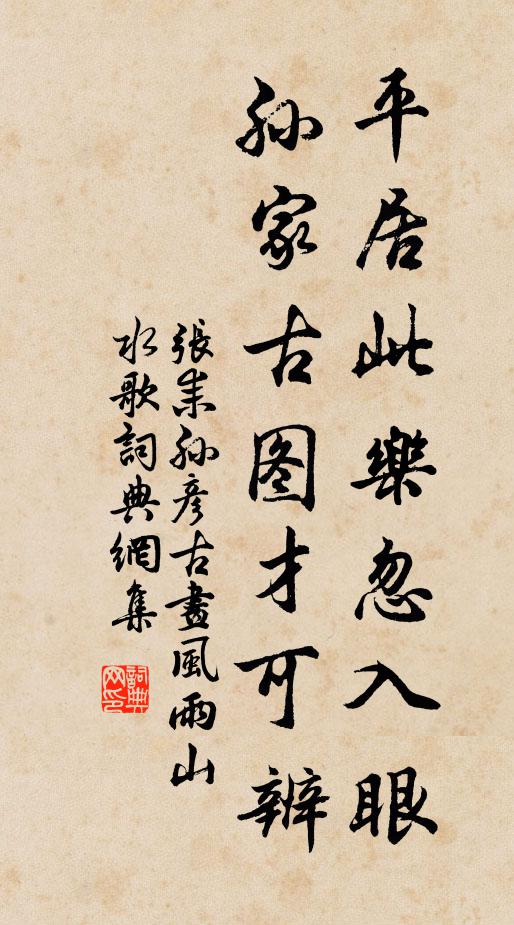 平居此樂忽入眼
孙家古图才可辨
張耒孙彦古畫風雨山
水歌詞典網集
詞典网印